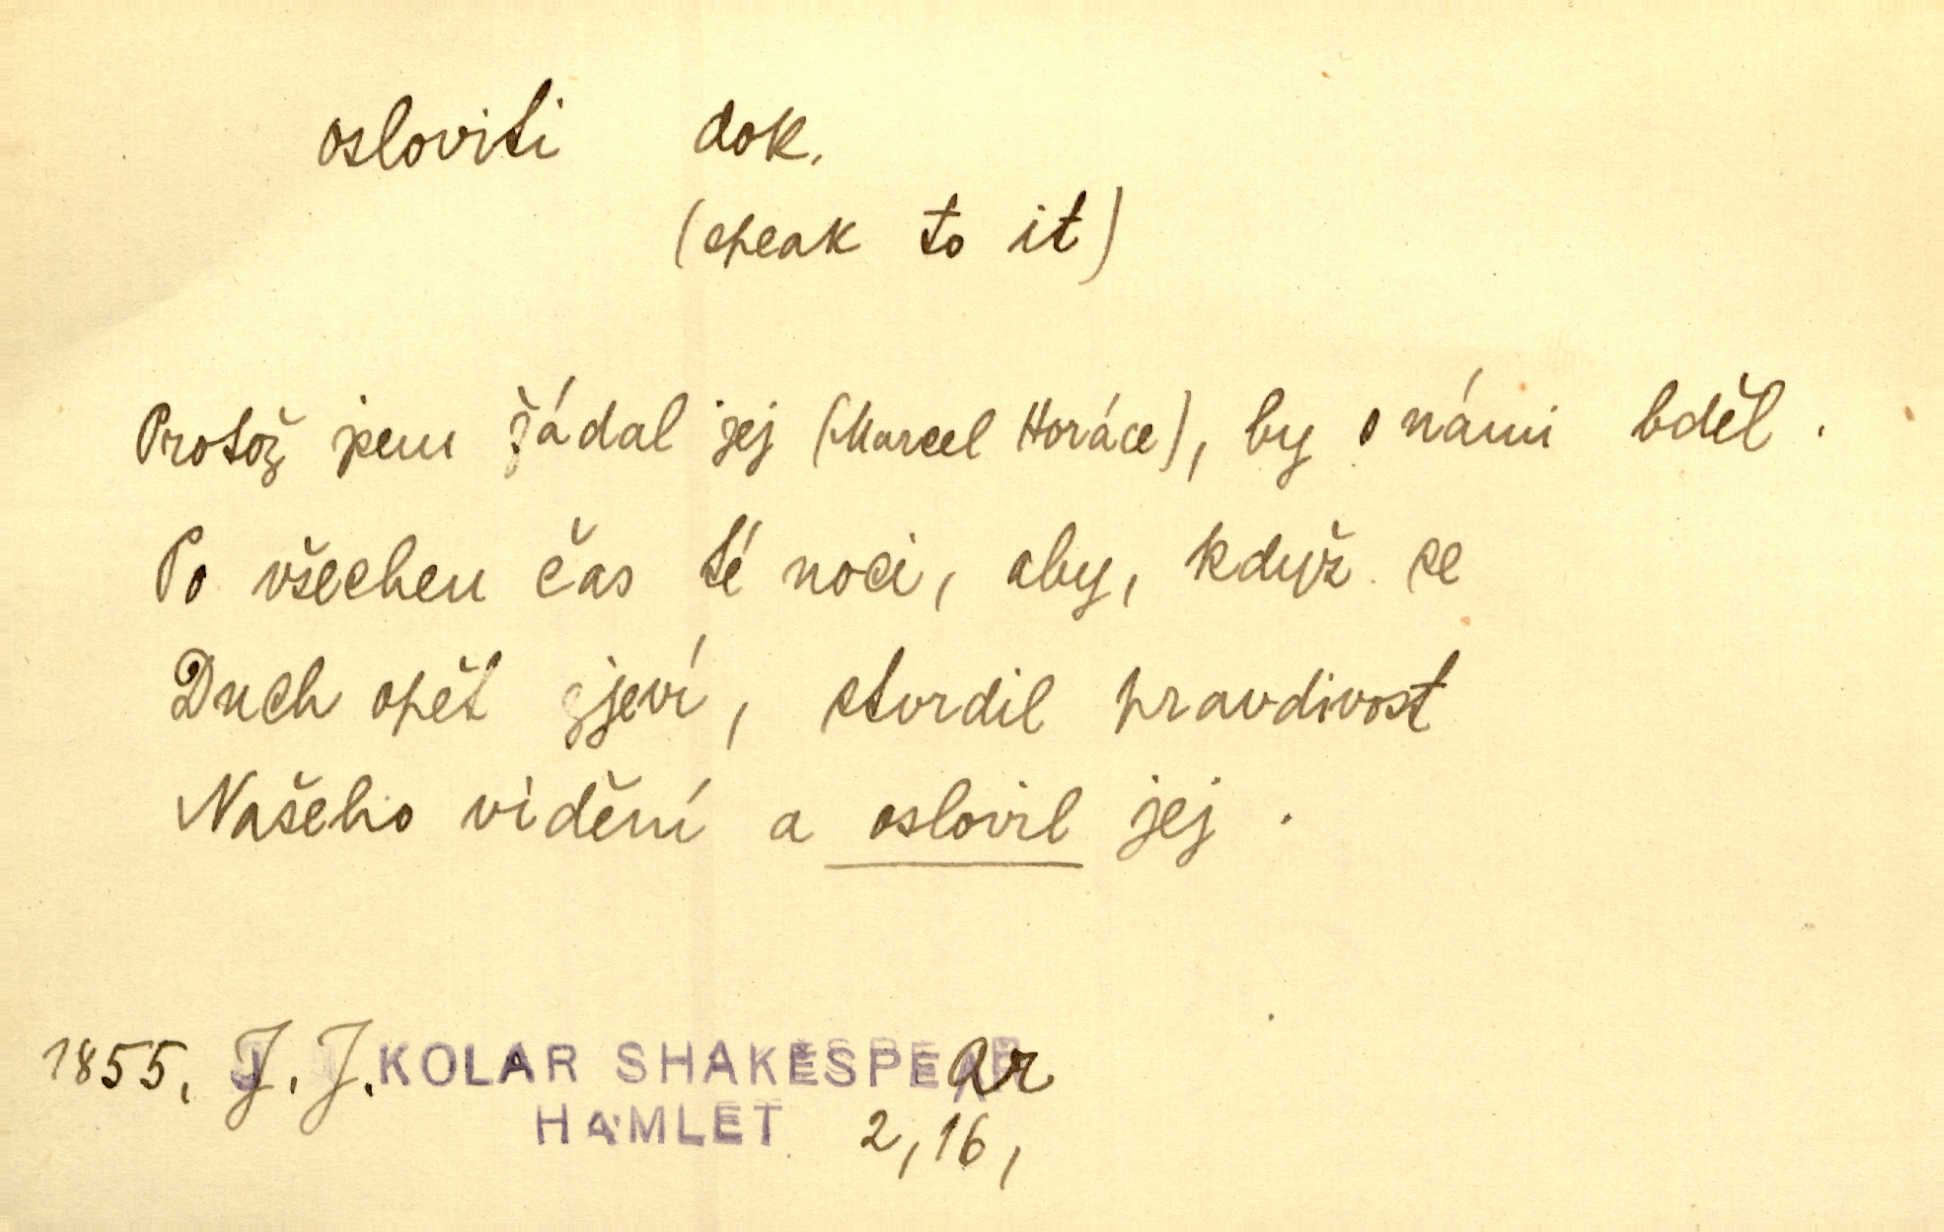 osloviti dok.
(speak to it)
Protož jsem žádal jej (Marcel Horáce), by s námi bděl.
Po všechen čas té noci, aby, když se
Duch opět zjeví, stvrdil pravdivost
Našeho vidění a oslovil jej.
1855, J. J. KOLAR SHAKESPEar
HAMLET 2, 16,